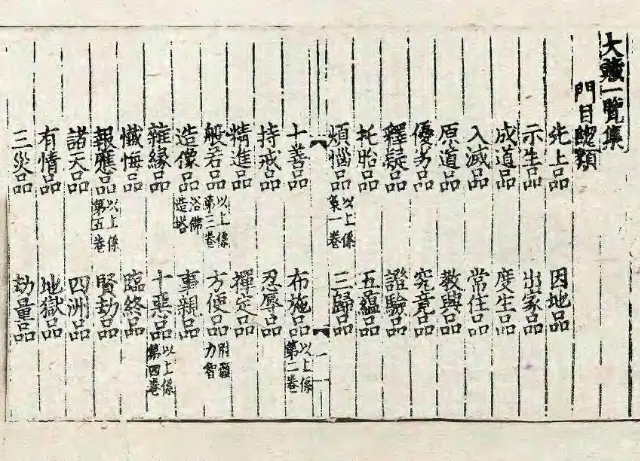 大藏一覽集
門目緫類
先上品 因地品
示生品 出家品
成道品 度生品
入滅品 常住品
原道品 教興品
優劣品 究竟品
釋疑品 證驗品
托胎品 五蘊品
煩惱品 以上係第一卷 三歸品
十善品 布施品 以上係第二卷
持戒品 忍辱品
精進品 禪定品
般若品 以上係第三卷 方便品 附願力智
造像品 浴佛造塔 事親品
雜緣品 十惡品 以上係第四卷
懺悔品 臨終品
報應品 以上係第五卷 賢劫品
諸天品 四洲品
有情品 地獄品
三災品 劫量品